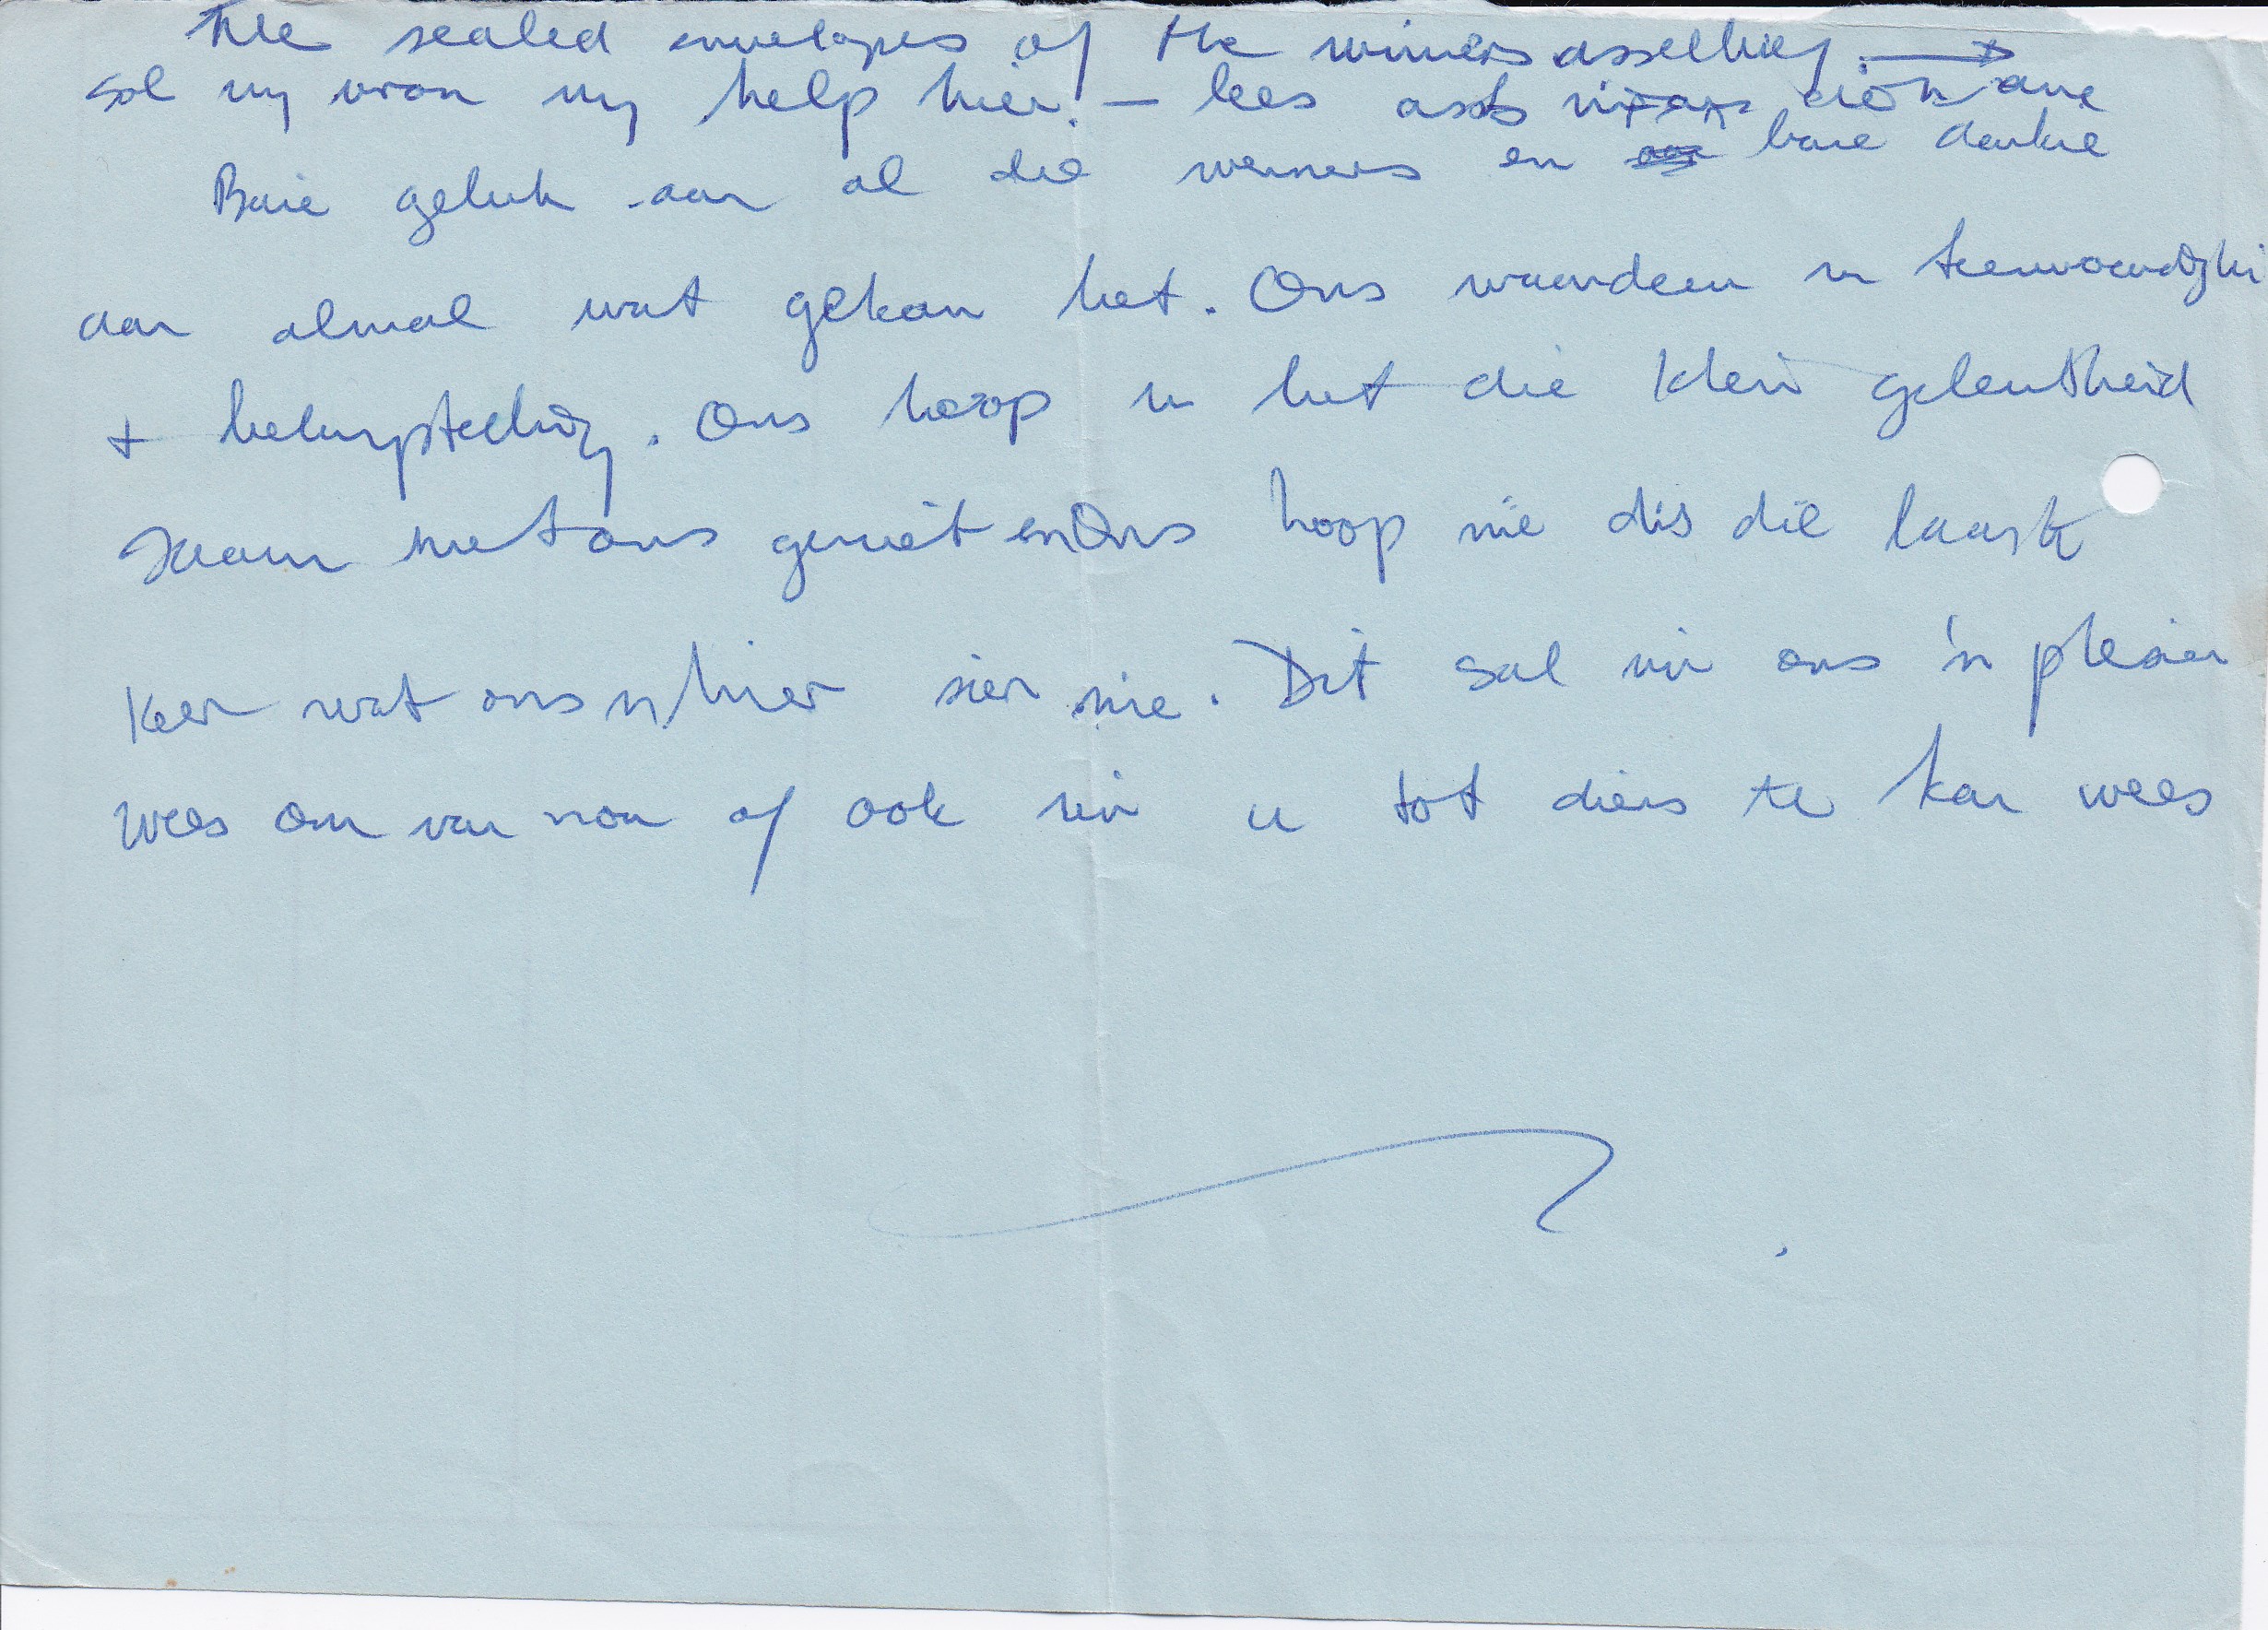 The sealed envelopes of the winners asseblief.
Sal my vrou my help hier. — lees asb
Baie geluk aan al die wenners en baie dankie
aan almal wat gekom het. Ons waardeer u teenwoordighei
+ belangstelling. Ons hoop u het die klein geleentheid
saam met ons geniet en Ons hoop nie dis die laaste
Keer wat ons u hier sien nie. Dit sal vir ons 'n plesier
wees om van nou af ook vir u tot diens te kan wees